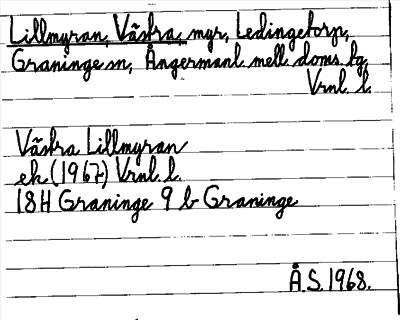 Lillmyran, Västra, myr, Ledingetorp,
Graninge sn, Ångermanl. mell. doms. tg,
Vrnl. l.
Västra Lillmyran
ek (1967) Vrnl. l.
18H Graninge 9 b Graninge
Å.S. 1968.